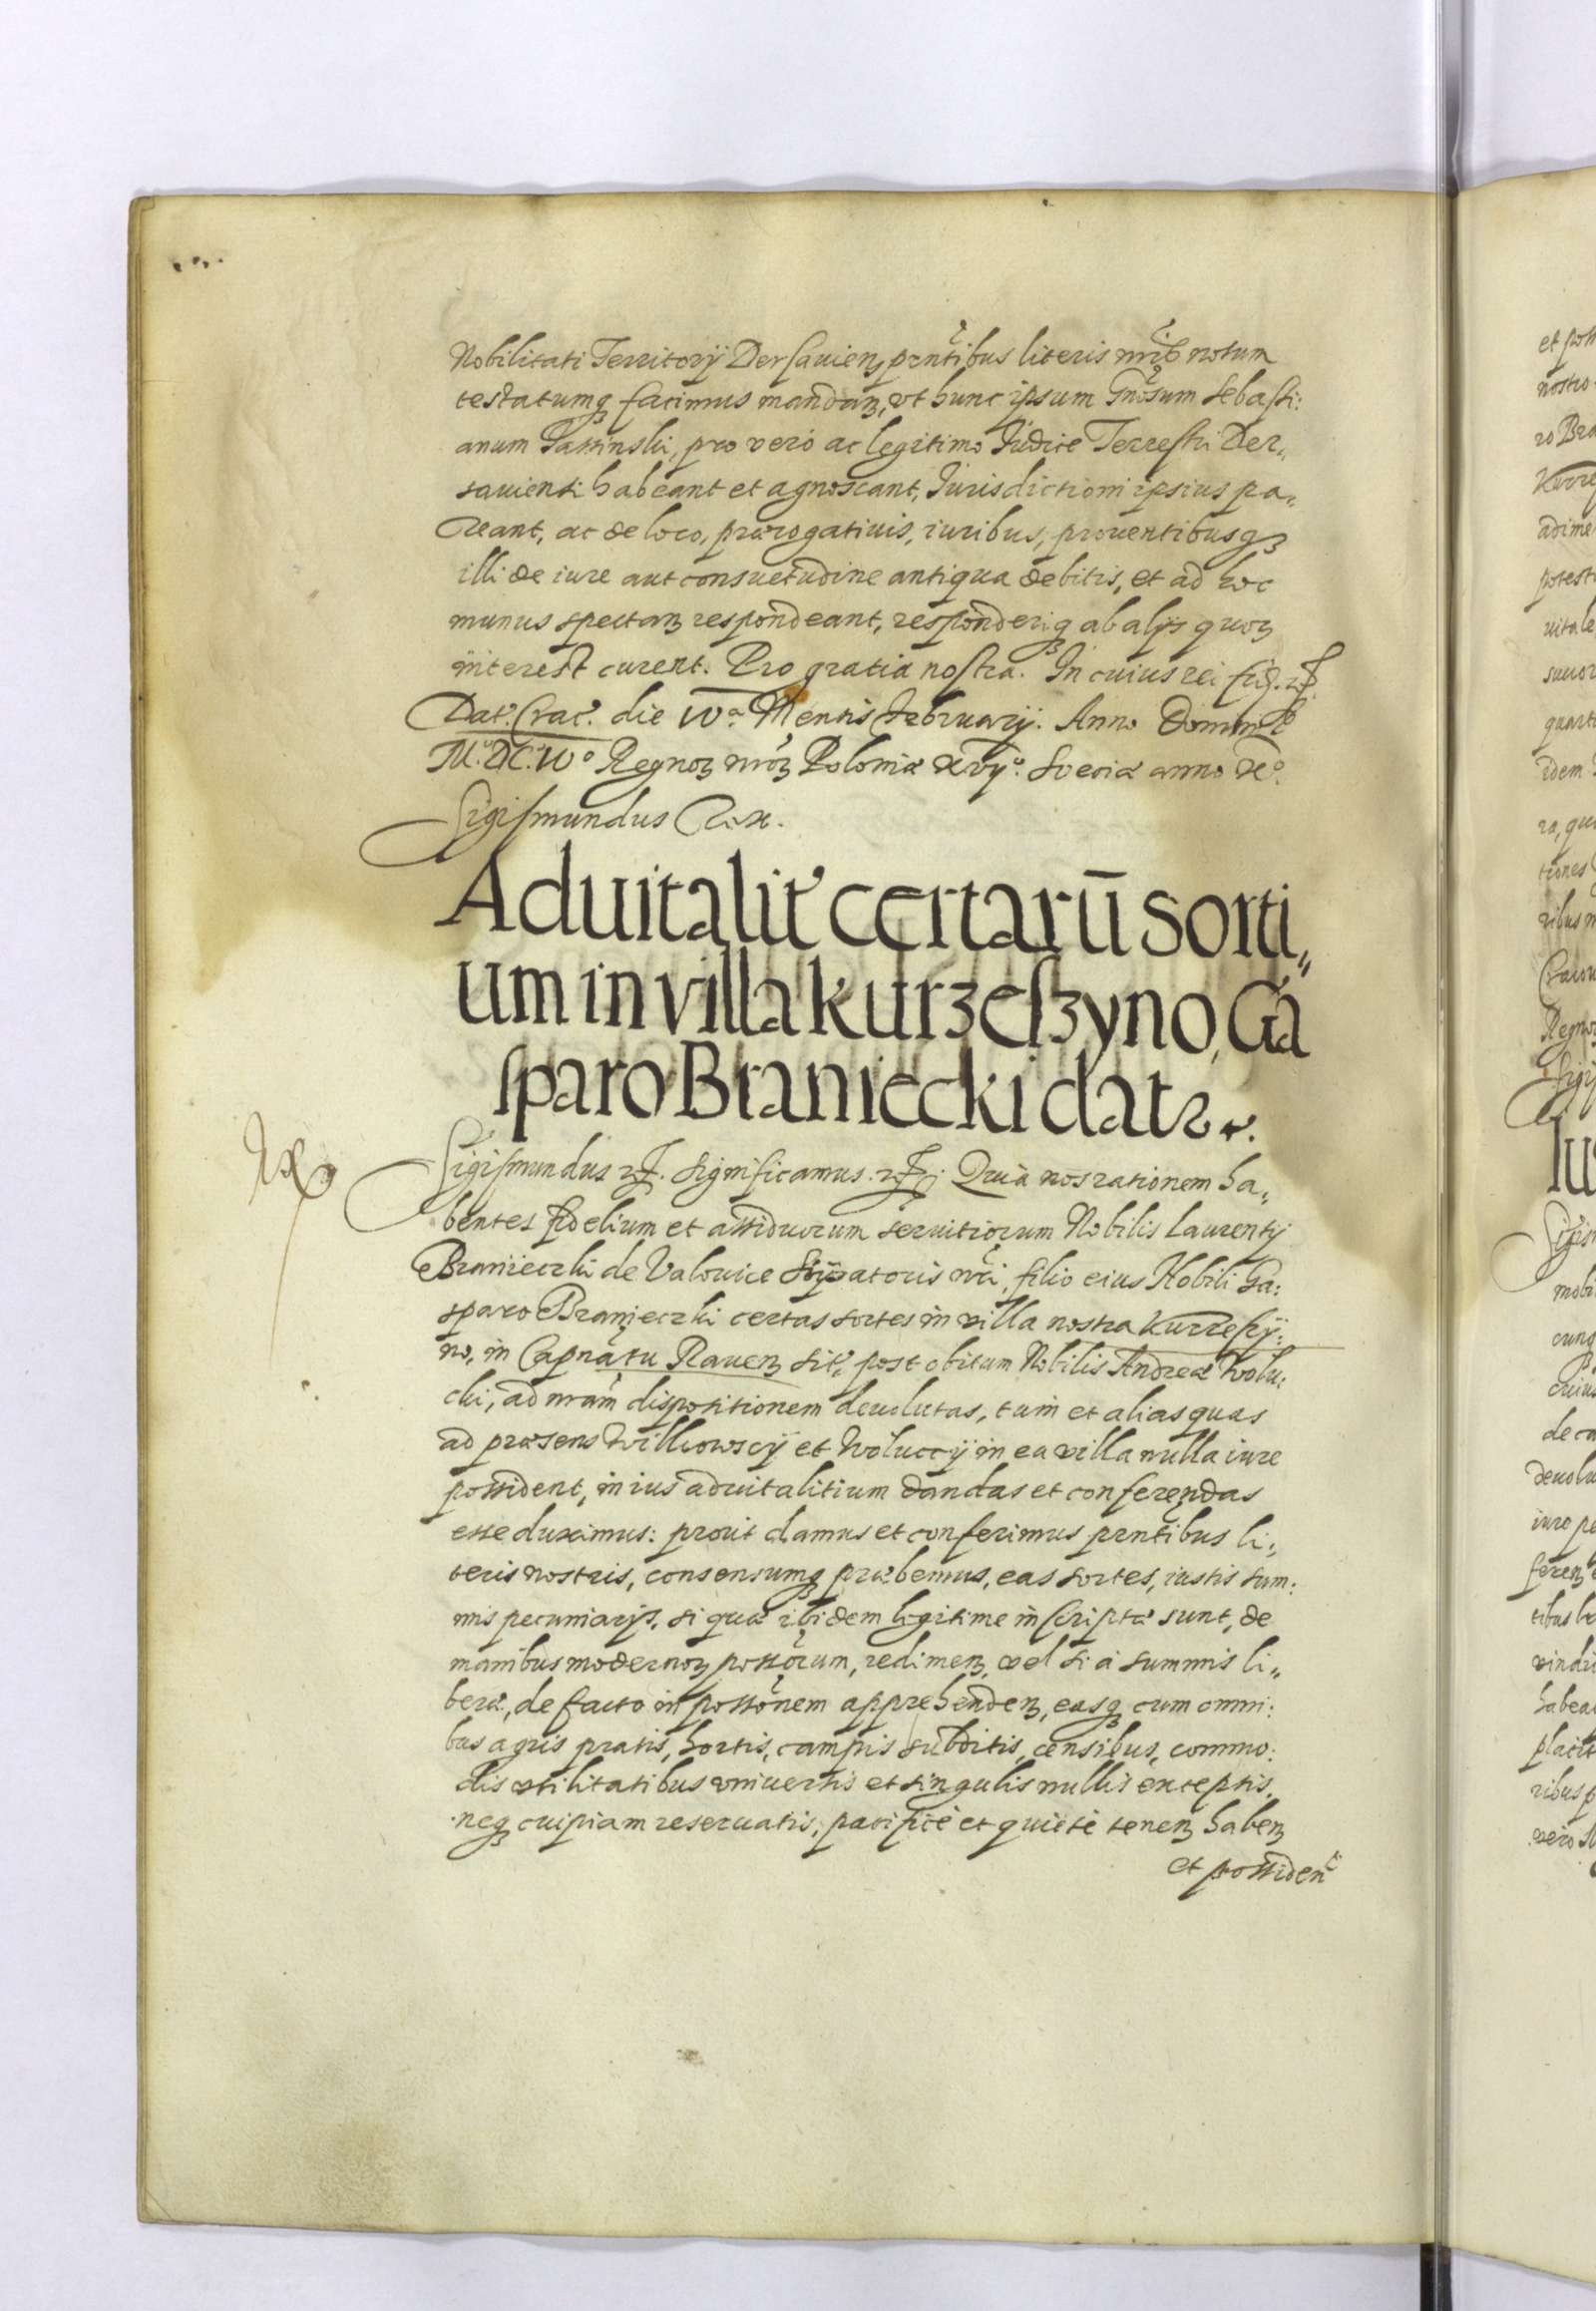 Nobilitati Territorij Dersauienȝ pñtibus literis nr̃is notum
testatumqȝ facimus mandanȝ, vt hunc ipsum Gñosum Sebasti:
anum pro vero ac legitimo Iudice Terrestri Der„
sauiensi habeant et agnoscant, Iurisdictioni ipsius pa„
reant, ac de loco, prærogatiuis, iuribus, prouentibusqȝ
illi de iure aut consuetudine antiqua debitis, et ad hoc
munus spectanȝ respondeant, responderiqȝ ab alijs quoȝ
interest curent. Pro gratia nostra. In cuius rei fid. etc.
Dat. Crac. die IVa Mensis Februarij. Anno Domini
M.DC.IVo Regnoȝ nr̃oȝ Poloniæ xvijo. Sueciæ anno xo.
Sigismundus Rex.
Aduitalit' certarū sorti„
um in villa Kurzeszyno, Ga
sparo Braniecki dat2.
Sigismundus etc. Significamus. etc. Quia nos rationem ha„
bentes fidelium et assiduorum seruitiorum Nobilis Laurentij
Branieczki de Valouice Stipatoris nr̃i, filio eius Nobili Ga:
sparo Branieczki certas sortes in villa nostra Kurzeszy:
no, in Capñatu Rauenȝ sit', post obitum Nobilis Andreæ Wolu:
cki, ad nr̃am dispositionem deuolutas, tum et alias quas
ad præsens Wilkowscij et Woluccij in ea villa nullo iure
possident, in ius aduitalitium dandas et conferendas
esse duximus: prout damus et conferimus pñtibus li„
teris nostris, consensumqȝ præbemus, eas sortes, iustis sum:
mis pecuniarijs, si quæ ibidem legitime inscriptæ sunt, de
manibus modernoȝ possorum, redimenȝ, vel si a summis li„
beræ, de facto in possonem apprehendenȝ, easqȝ cum omni:
bus agris pratis, hortis, campis subditis, censibus, commo:
dis vtilitatibus vniuersis et singulis nullis exceptis.
neqȝ cuipiam reseruatis, pacificè et quietè tenenȝ habenȝ
et possiden̄